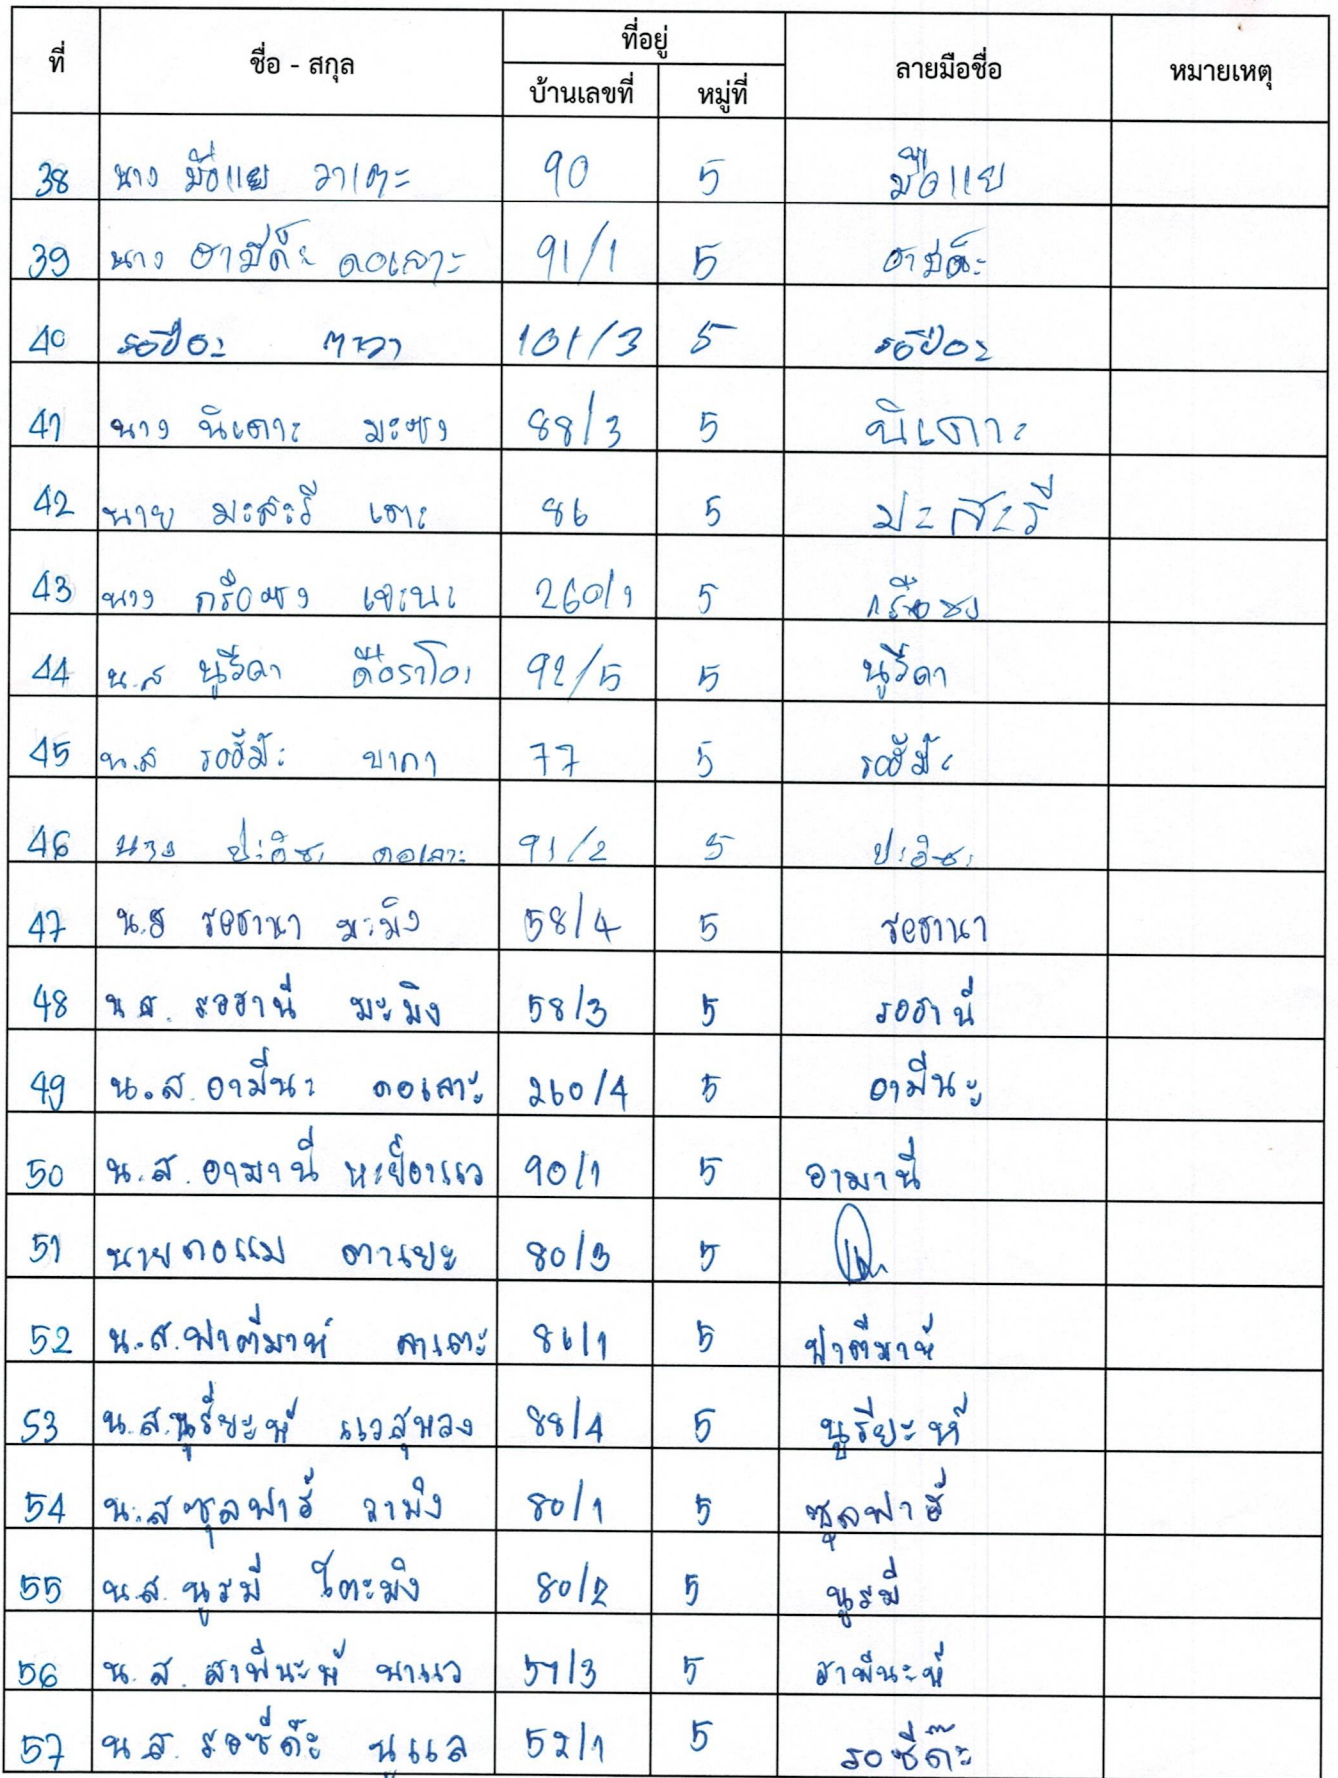 ที่ ชื่อ - สกุล ที่อยู่ ลายมือชื่อ หมายเหตุ
บ้านเลขที่ หมู่ที่
38 นาง มือแย วาเตะ 90 5 มือแย
39 นาง ฮามีด๊ะ ดอเลาะ 91/1 5 ฮามีด๊ะ
40 รอปีอะ 101/3 5 รอปีอะ
41 นาง นิเดาะ มะซง 88/3 5 นิเดาะ
42 นาย มะสะรี เตะ 86 5 มะสะรี
43 นาง กรือซง เจะนะ 260/1 5 กรือซง
44 น.ส นูรีดา ดือราโอะ 92/5 5 นูรีดา
45 น.ส รอฮีม๊ะ บากา 77 5 รอฮีม๊ะ
46 นาง ปะอิซะ ดอเลาะ 91/2 5 ปะอิซะ
47 น.ส รอฮานา มะมิง 58/4 5 รอฮานา
48 น.ส. รอฮานี มะมิง 58/3 5 รอฮานี
49 น.ส. อามีนะ ดอเลาะ 260/4 5 อามีนะ
50 น.ส. อามานี 90/1 5 อามานี
51 นาย ตาเยะ 80/3 5
52 น.ส. ฟาตีมาห์ ลาเตะ 86/1 5 ฟาตีมาห์
53 น.ส. นูรียะห์ แวสุหลง 88/4 5 นูรียะห์
54 น.ส ซุลฟาร์ วามิง 80/1 5 ซุลฟาร์
55 น.ส. นูรมี โตะมิง 80/2 5 นูรมี
56 น.ส. สาพีนะห์ นาแว 51/3 5 สาพีนะห์
57 น.ส. รอซีด๊ะ นูแล 52/1 5 รอซีด๊ะ